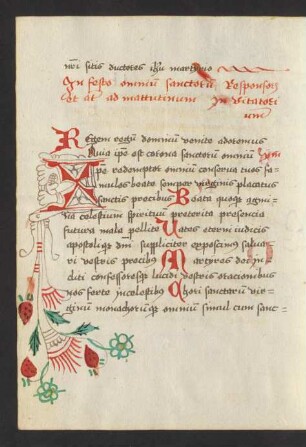 nri sitis ductores ihu martirio
In festo omniū sanctorū Responsori
et aͣ ad mattutinum In vitatori
um
Regem regū dominū venite adoremus
Quia ipse est corona sanctorū omniū Ympͫ
Xpe redemptor omniū conserva tuos fa-
mulos beate semper virginis placatus
sanctis precibus Beata quoqꝫ agmi-
na celestium spirituū preterita presencia
futura mala pellite Vates eterni iudicis
apostoliqꝫ dni suppliciter exposcimus salua-
ri vestris precibus Martyres dei in-
cliti confessoresqꝫ lucidi vestris orationibus
nos ferte in celestibus Chori sanctarū vir-
ginū monachorūqꝫ omniū simul cum sanc-